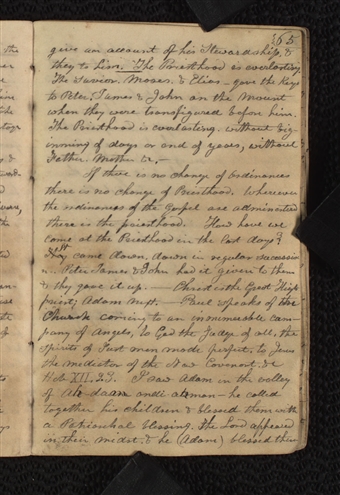 65
give an account of his Stewardship, &
they to him. The Priesthood is everlasting
The Savior, Moses, & Elias - gave the Keys
to Peter, James & John on the Mount
when they were transfigured before him.
The Priesthood is everlasting, without beg-
inning of days or end of years, without
Father, Mother &c,
If there is no change of ordinances
there is no change of Priesthood. Wherever
the ordinances of the Gospel are administered
there is the priesthood. How have we
come at the Priesthood in the last days?
They came down, down in regular successio
n. Peter James & John had it given to them
& they gave it up. — Christ is the Great High
priest; Adam next. — Paul speaks of the
Church coming to an innumerable com-
pany of Angels, to God the Judge of all, the
spirits of Just men made perfect, to Jesus
the mediator of the New Covenant, &c
Heb XII. 23. I saw Adam in the valley
of Ah-daam ondi-ahman — he called
together his children & blessed them with
a Patriarchal blessing. The Lord appeared
in their midst, & he (Adam) blessed them